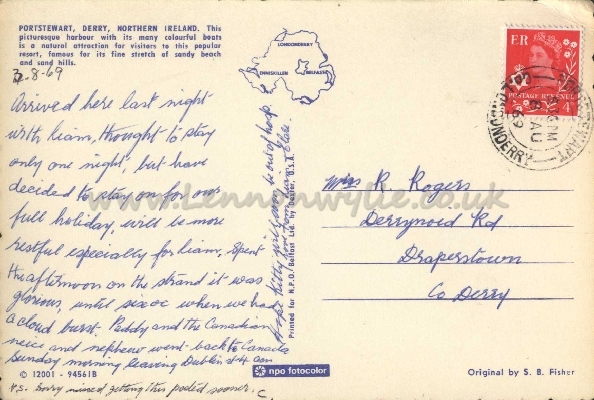 PORTSTEWART, DERRY, NORTHERN IRELAND. This
picturesque harbour with its many colourful boats
is a natural attraction for visitors to this popular
resort, famous for its fine stretch of sandy beach
and sand hills.
3-8-69
Arrived here last night
with Liam, thought to stay
only one night, but have
decided to stay on for our
full holiday, will be more
restful especially for Liam, Spent
the afternoon on the strand it was
glorious, until six oc when we had
a cloud burst. Paddy and the Canadian
neice and nephew went back to Canada
Sunday morning leaving Dublin at 4 am
P.S. Sorry missed getting this posted sooner. C
Hope Kitty will soon be out of hosp.
from Clare.
LONDONDERRY
ENNISKILLEN
BELFAST
Printed for N.P.O./Belfast Ltd. by Dexter, U.S.A.
E R
POSTAGE REVENUE
4D
PORTSTEWART
AU
69
LONDONDERRY
Miss R. Rogers
Derrynoid Rd
Draperstown
Co Derry
www.Lennonwylie.co.uk
© 12001 - 94561B
npo fotocolor
Original by S. B. Fisher